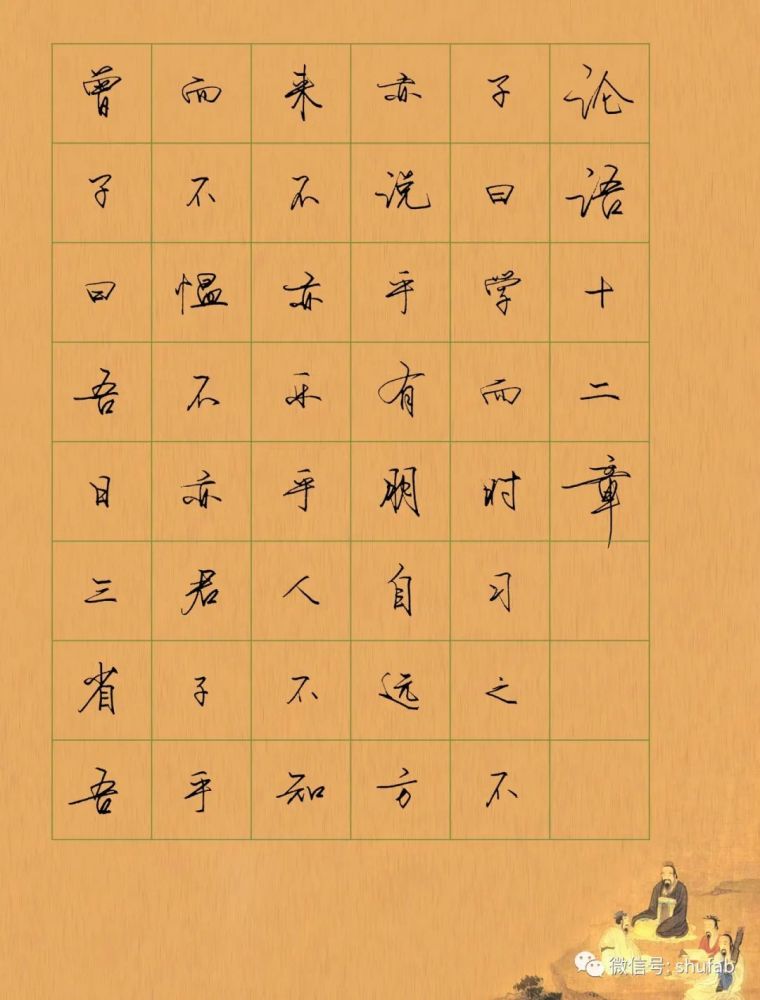 论语十二章
子曰学而时习之不
亦说乎有朋自远方
来不亦乐乎人不知
而不愠不亦君子乎
曾子曰吾日三省吾
微信号: shufab